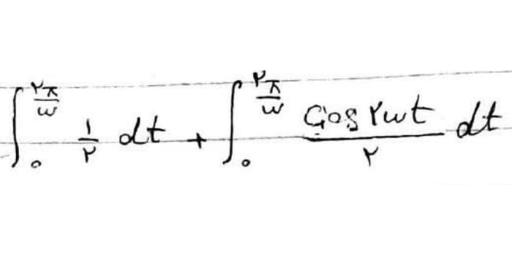 ∫₀^{۲π/ω} ۱/۲ dt + ∫₀^{۲π/ω} (Cos ۲ωt)/۲ dt